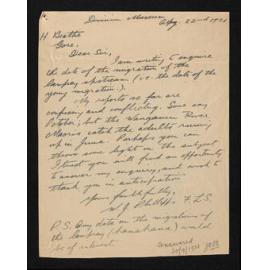 Dominion Museum
Aug 22nd 1931
H Beattie
Gore.
Dear Sir,
I am writing to enquire
the date of the migration of the
lamprey upstream (i.e. the date of the
young migration).
My reports so far are
confusing and conflicting. Some say
October, but the Wanganui River
Maoris catch the adults running
up in June. Perhaps you can
throw some light on the subject
I trust you will find an opportunity
to answer my enquiry, and wish to
thank you in anticipation
Yours faithfully,
W J Phillipps F.L.S.
P.S. Any data on the migrations of
the lamprey (kanakana) would
be of interest
Answered